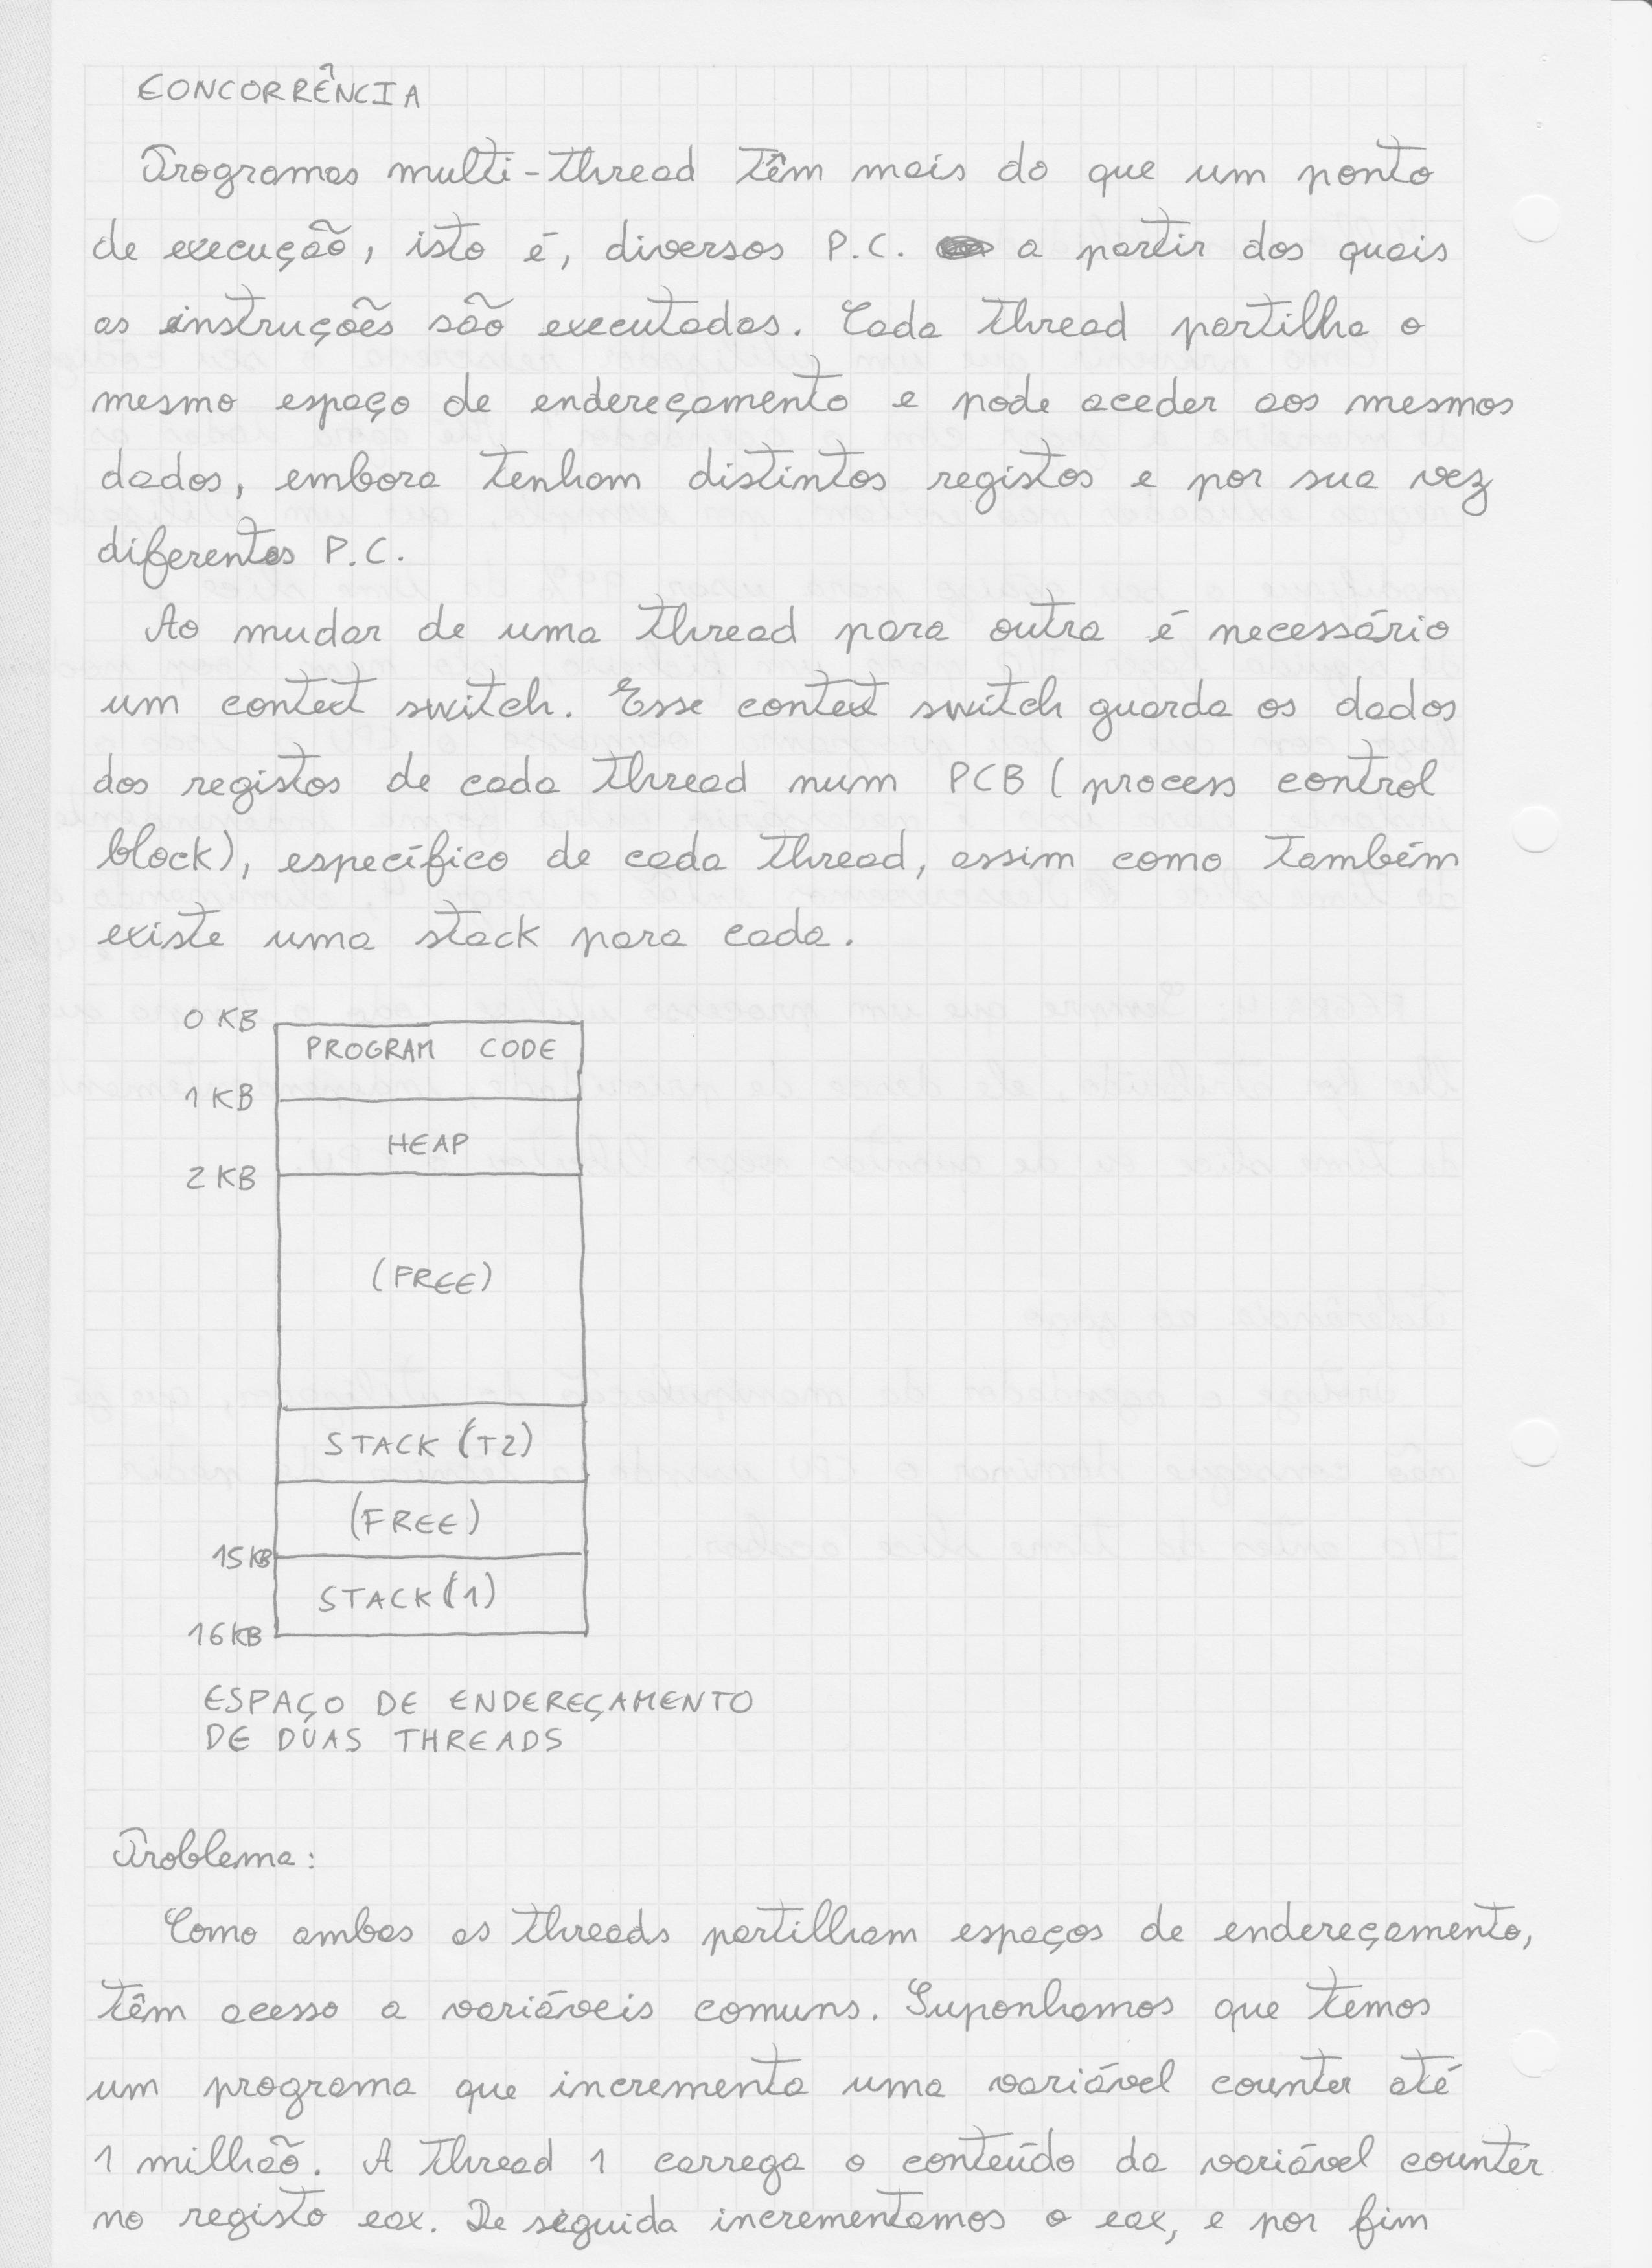 CONCORRÊNCIA
Programas multi-thread têm mais do que um ponto
de execução, isto é, diversos P.C. a partir dos quais
as instruções são executadas. Cada thread partilha o
mesmo espaço de endereçamento e pode aceder aos mesmos
dados, embora tenham distintos registos e por sua vez
diferentes P.C.
Ao mudar de uma thread para outra é necessário
um context switch. Esse context switch guarda os dados
dos registos de cada thread num PCB (process control
block), específico de cada thread, assim como também
existe uma stack para cada.
0 KB
PROGRAM CODE
1 KB
HEAP
2 KB
(FREE)
STACK (T2)
(FREE)
15 KB
STACK (1)
16 KB
ESPAÇO DE ENDEREÇAMENTO
DE DUAS THREADS
Problema:
Como ambas as threads partilham espaços de endereçamento,
têm acesso a variáveis comuns. Suponhamos que temos
um programa que incrementa uma variável counter até
1 milhão. A thread 1 carrega o conteúdo da variável counter
no registo eax. De seguida incrementamos o eax, e por fim